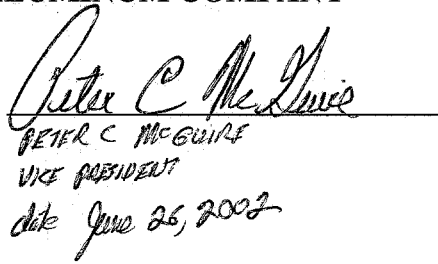 ALUMINUM COMPANY
Peter C McGuire
PETER C McGUIRE
VICE PRESIDENT
date June 26, 2002